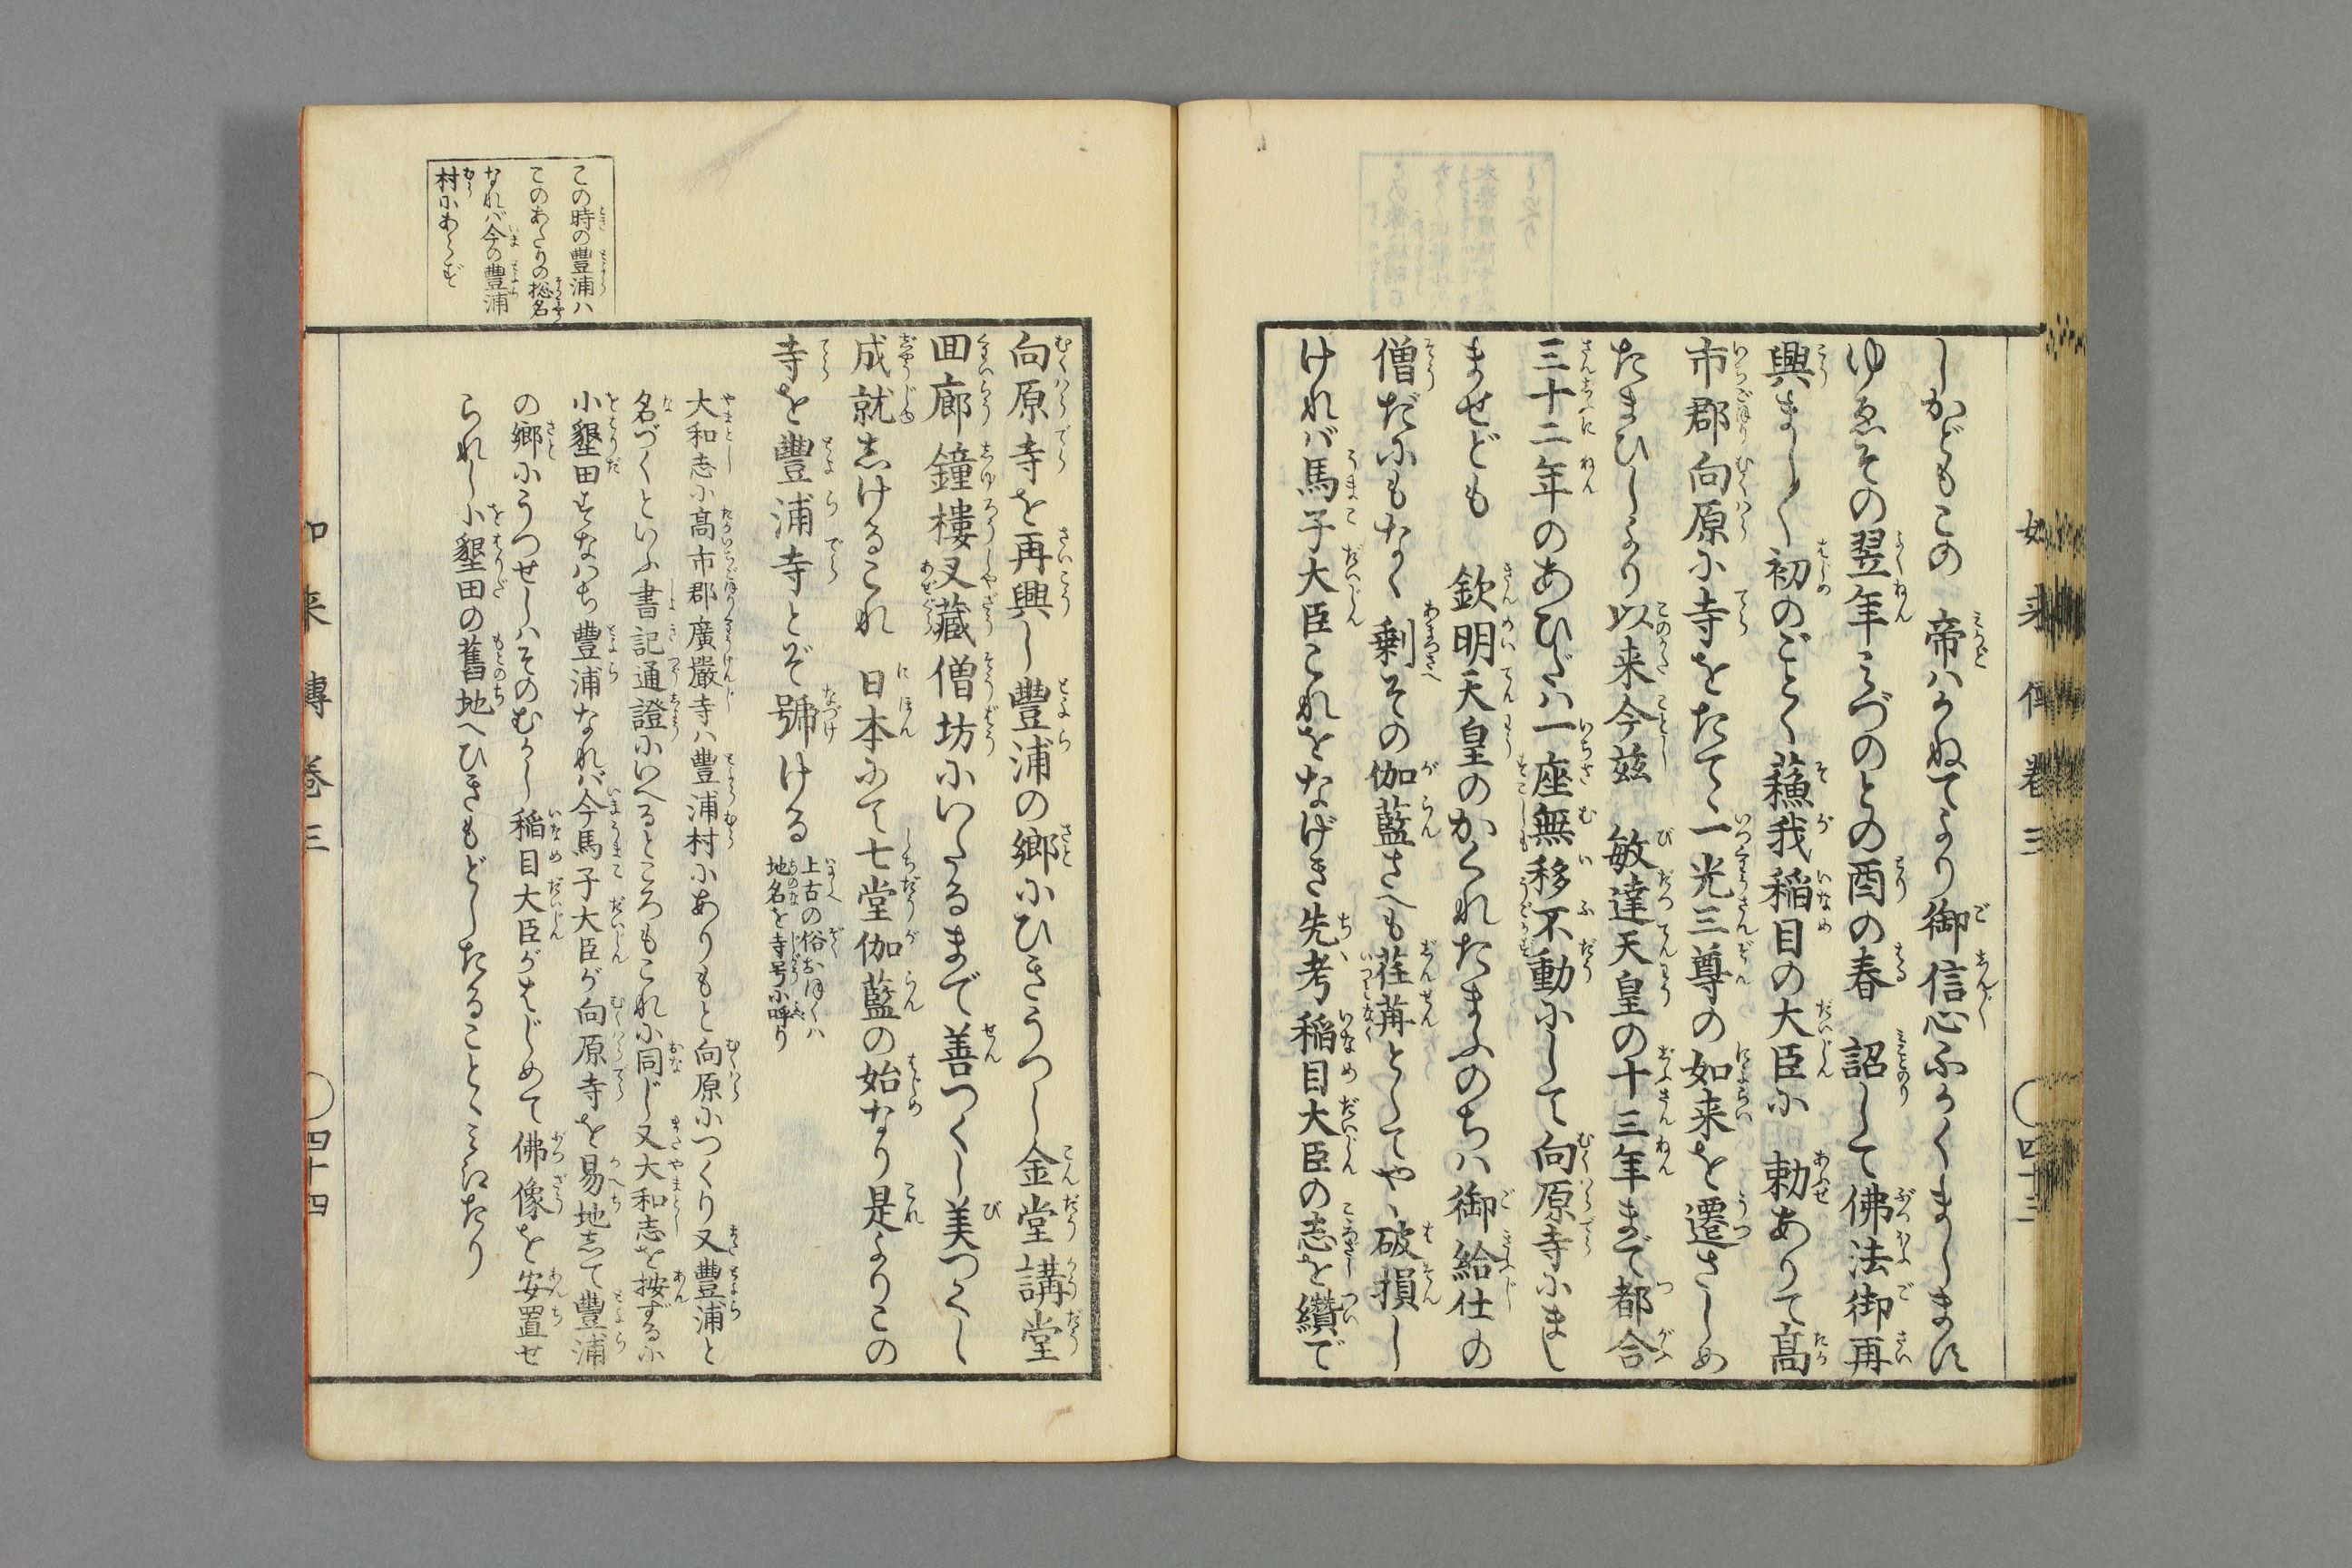 しかどもこの 帝ハかねてより御信心ふかくましませバ
ゆゑその翌年みづのとの酉の春 詔して佛法御再
興まし〳〵初のごとく蘓我稲目の大臣に 勅ありて髙
市郡向原に寺をたて、一光三尊の如来を遷さしめ
たまひしより以来今茲 敏達天皇の十三年まで都合
三十二年のあひだハ一座無移不動にして向原寺にまし
ませども 欽明天皇のかくれたまふのちハ御給仕の
僧だにもなく剰その伽藍さへも荏苒としてや、破損し
けれバ馬子大臣これをなげき先考稲目大臣の志を纉で
如来傳巻三 ○四十三
向原寺を再興し豐浦の郷にひきうつし金堂講堂
回廊鐘樓叉藏僧坊にいたるまで善つくし美つくし
成就しけるこれ 日本にて七堂伽藍の始なり是よりこの
寺を豐浦寺とぞ號ける
上古の俗おほくハ
地名を寺号に呼り
大和志に髙市郡廣嚴寺ハ豐浦村にありもと向原につくり又豐浦と
名づくといふ書記通證にいへるところもこれに同じ又大和志を按ずるに
小墾田すなはち豐浦なれバ今馬子大臣が向原寺を易地して豐浦
の郷にうつせしハそのむかし稲目大臣がはじめて佛像を安置せ
られし小墾田の舊地へひきもどしたることゝみえたり
この時の豐浦ハ
このあたりの総名
なれバ今の豐浦
村にあらず
如来傳巻三 ○四十四